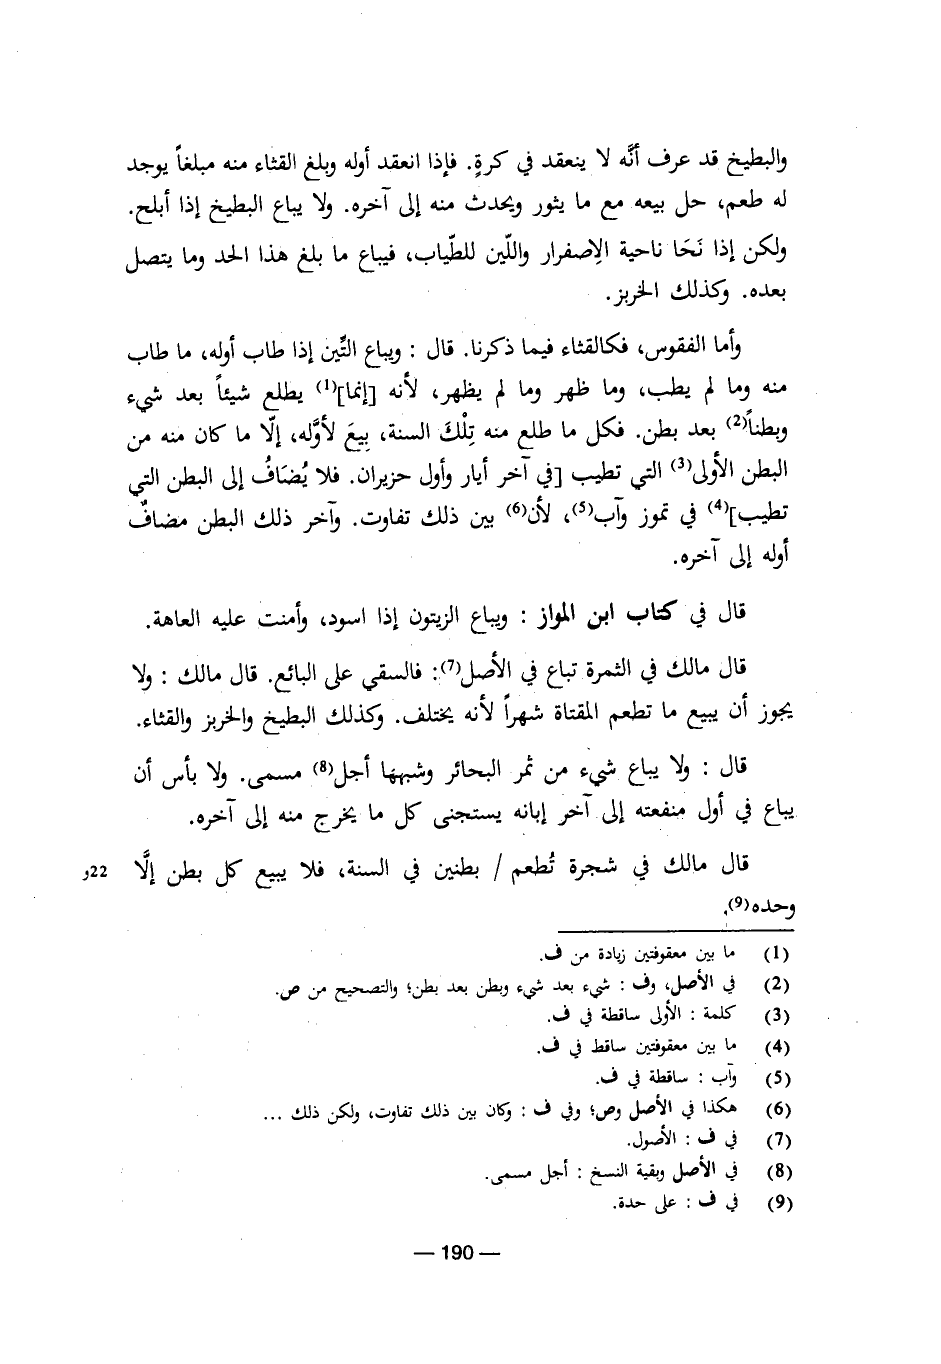 والبطيخ قد عرف أنَّه لا ينعقد في كرةٍ. فإذا انعقد أوله وبلغ القثاء منه مبلغاً يوجد
له طعم، حل بيعه مع ما يثور ويحدث منه إلى آخره. ولا يباع البطيخ إذا أبلح.
ولكن إذا نَحَا ناحية الإصفرار واللّين للطّياب، فيباع ما بلغ هذا الحد وما يتصل
بعده. وكذلك الخربز.
وأما الفقوس، فكالقثاء فيما ذكرنا. قال : ويباع التّين إذا طاب أوله، ما طاب
منه وما لم يطب، وما ظهر وما لم يظهر، لأنه [إنما](1) يطلع شيئاً بعد شيء
وبطناً(2) بعد بطن. فكل ما طلع منه تِلْكَ السنة، بِيعَ لأوَّله، إلّا ما كان منه من
البطن الأولى(3) التي تطيب [في آخر أيار وأول حزيران. فلا يُضَافُ إلى البطن التي
تطيب](4) في تموز وآب(5)، لأن(6) بين ذلك تفاوت. وآخر ذلك البطن مضافٌ
أوله إلى آخره.
قال في كتاب ابن المواز : ويباع الزيتون إذا اسود، وأمنت عليه العاهة.
قال مالك في الثمرة تباع في الأصل(7): فالسقي على البائع. قال مالك : ولا
يجوز أن يبيع ما تطعم المقتاة شهراً لأنه يختلف. وكذلك البطيخ والخربز والقثاء.
قال : ولا يباع شيء من ثمر البحائر وشبهها أجل(8) مسمى. ولا بأس أن
يباع في أول منفعته إلى آخر إبانه يستجنى كل ما يخرج منه إلى آخره.
قال مالك في شجرة تُطعم / بطنين في السنة، فلا يبيع كل بطن إلَّا 22و
وحده(9).
(1) ما بين معقوفتين زيادة من ف.
(2) في الأصل، وف : شيء بعد شيء وبطن بعد بطن؛ والتصحيح من ص.
(3) كلمة : الأولى ساقطة في ف.
(4) ما بين معقوفتين ساقط في ف.
(5) وآب : ساقطة في ف.
(6) هكذا في الأصل وص؛ وفي ف : وكان بين ذلك تفاوت، ولكن ذلك ...
(7) في ف : الأصول.
(8) في الأصل وبقية النسخ : أجل مسمى.
(9) في ف : على حدة.
— 190 —